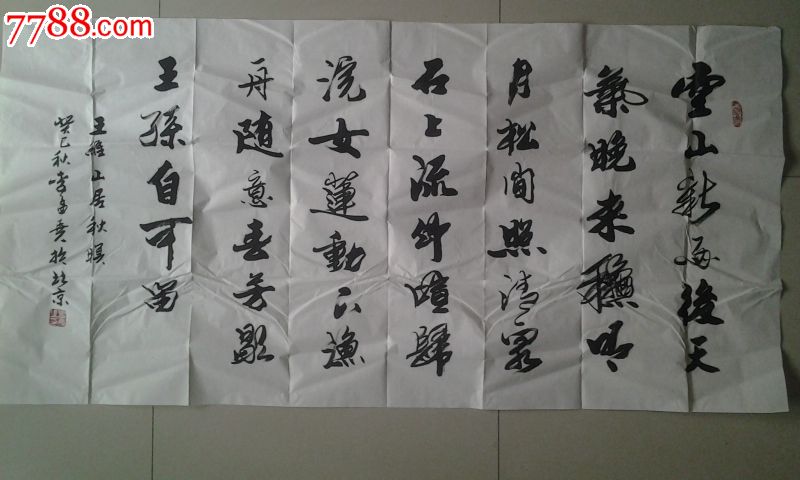 7788.com
空山新雨後天
氣晚来穐明
月松间照清泉
石上流竹喧歸
浣女蓮動下漁
舟随意春芳歇
王孫自可留
王維山居秋暝
癸巳秋李於北京